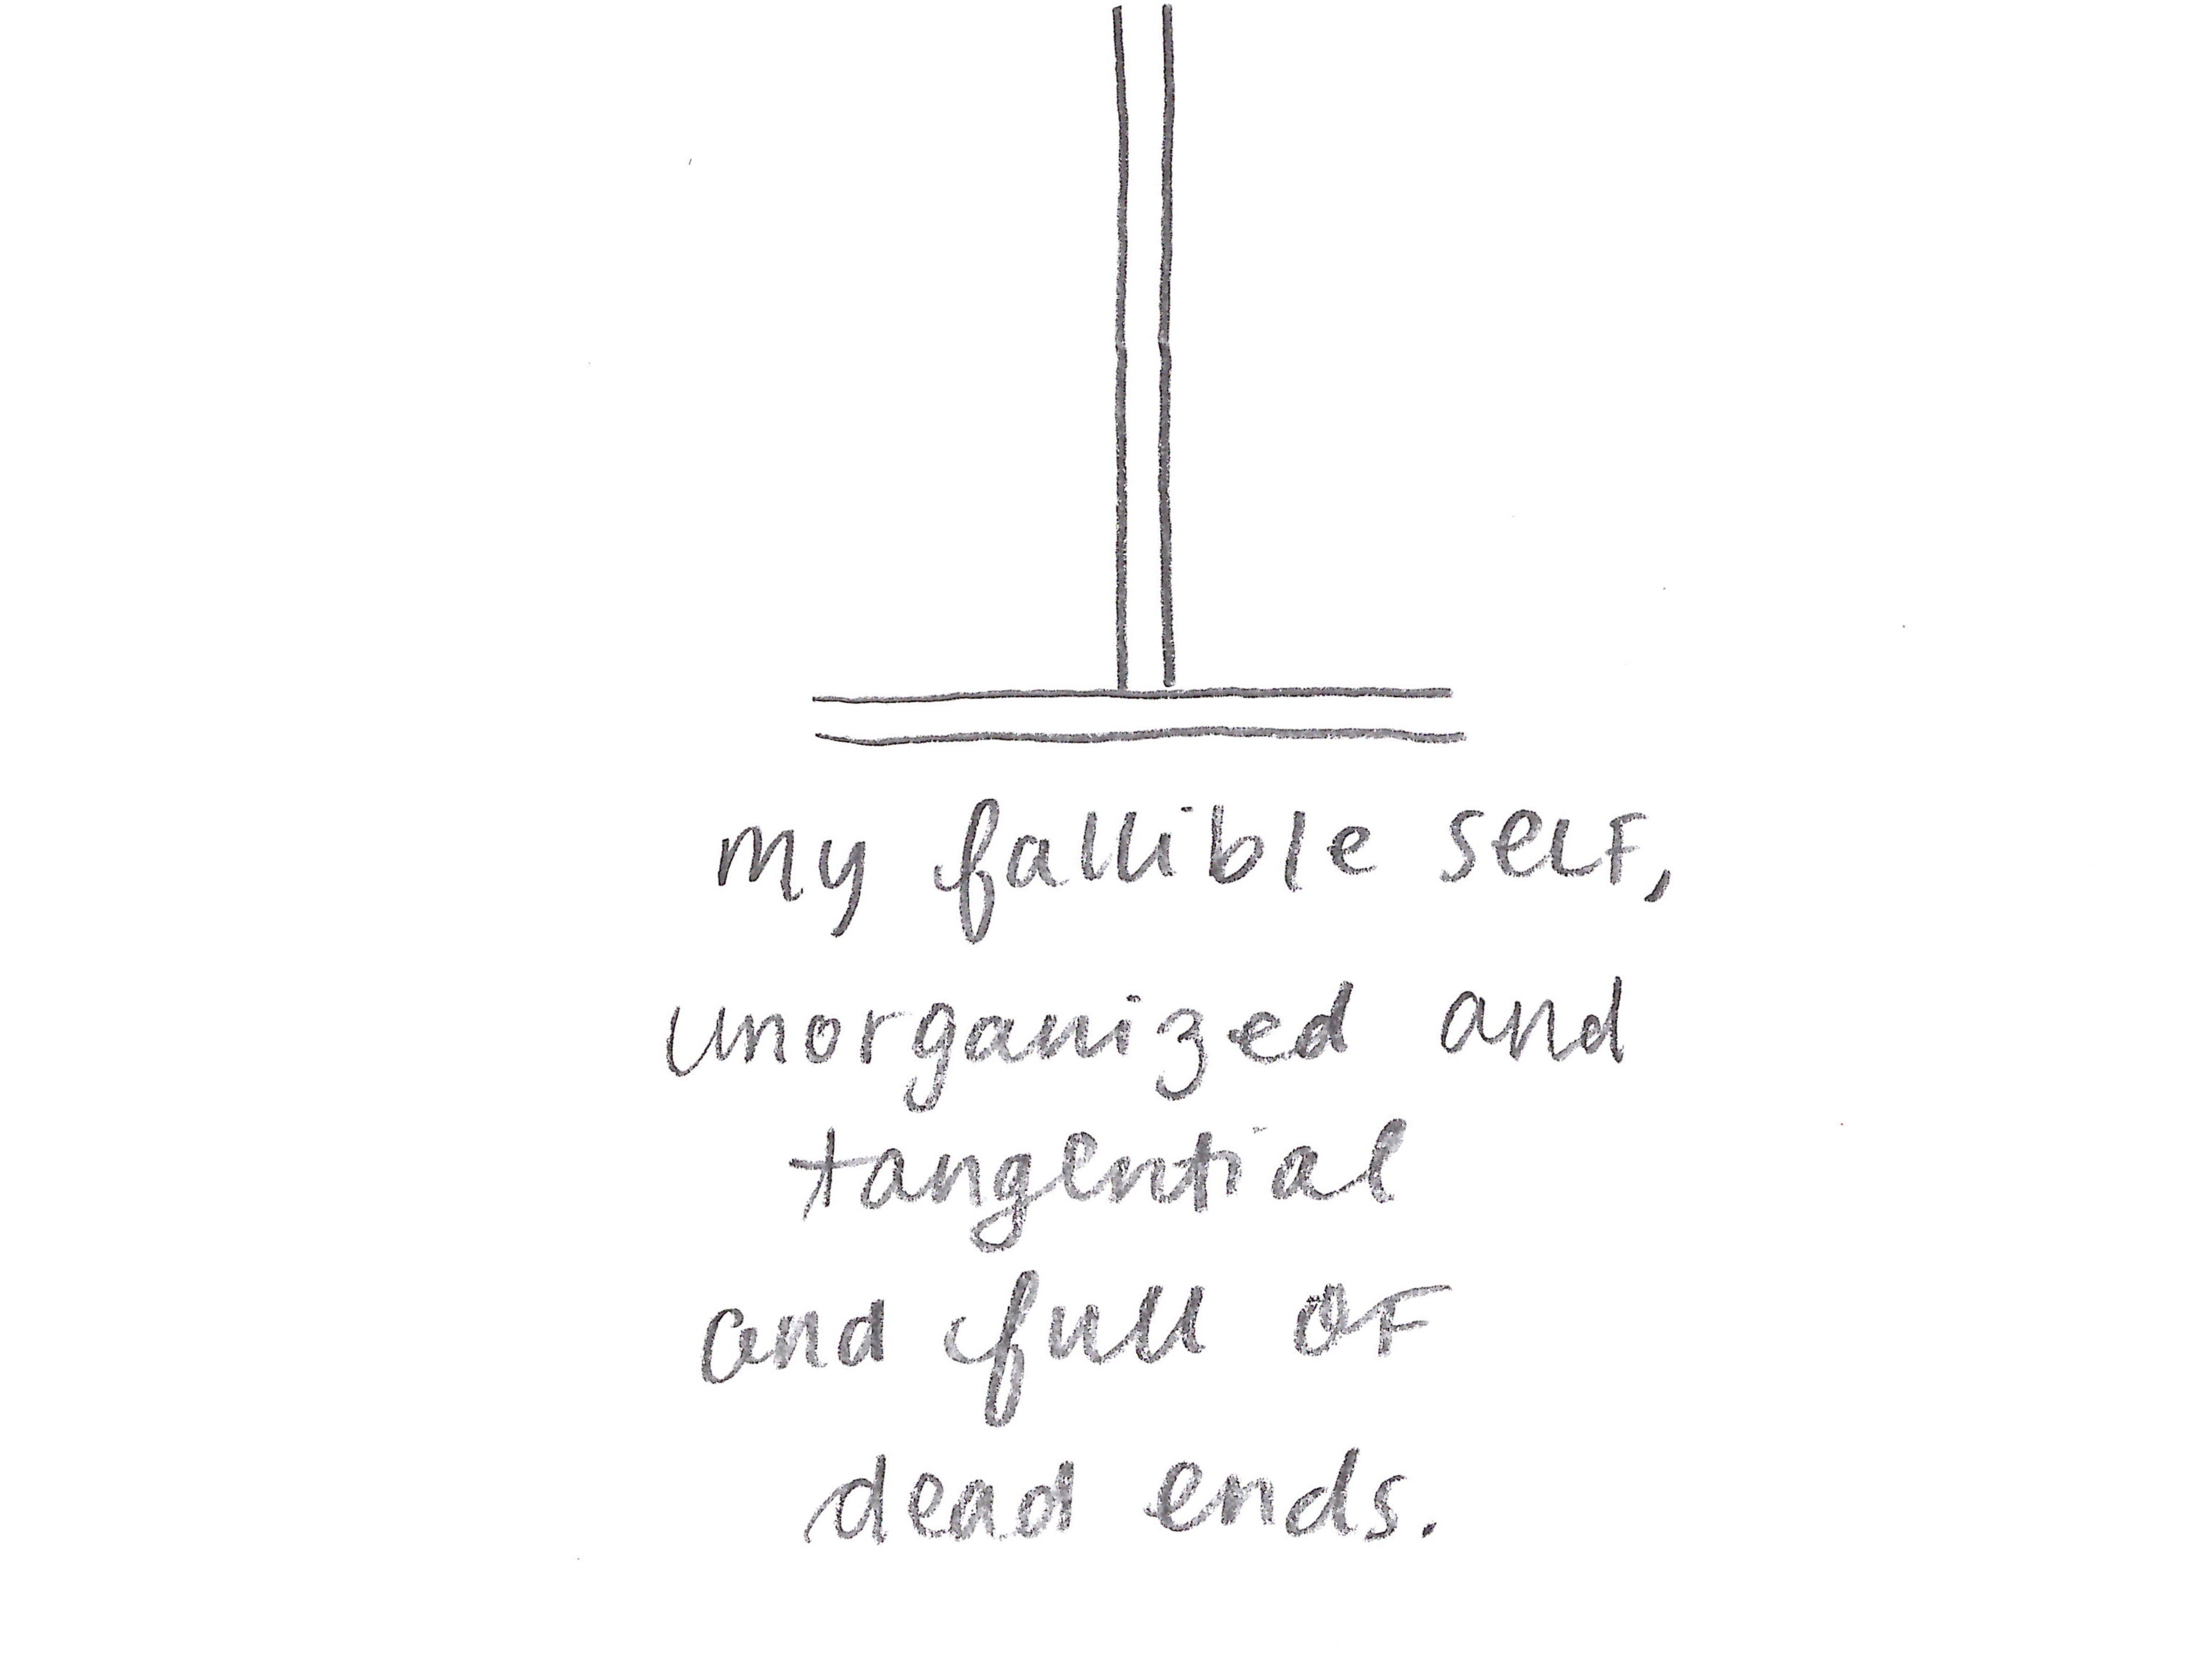 my fallible self,
unorganized and
tangential
and full of
dead ends.